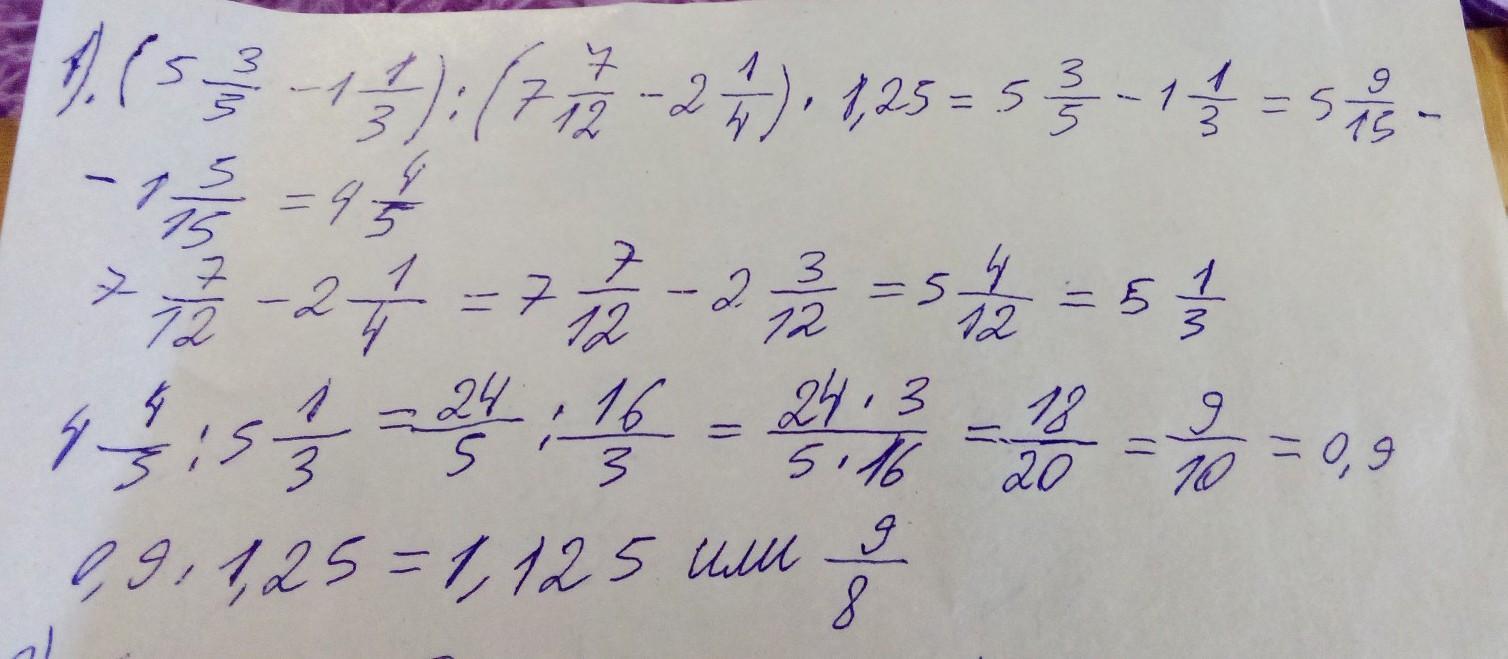 1). (5 3/5 - 1 1/3) : (7 7/12 - 2 1/4) · 1,25 = 5 3/5 - 1 1/3 = 5 9/15 -
- 1 5/15 = 4 4/5
7 7/12 - 2 1/4 = 7 7/12 - 2 3/12 = 5 4/12 = 5 1/3
4 4/5 : 5 1/3 = 24/5 : 16/3 = 24·3/5·16 = 18/20 = 9/10 = 0,9
0,9 · 1,25 = 1,125 или 9/8